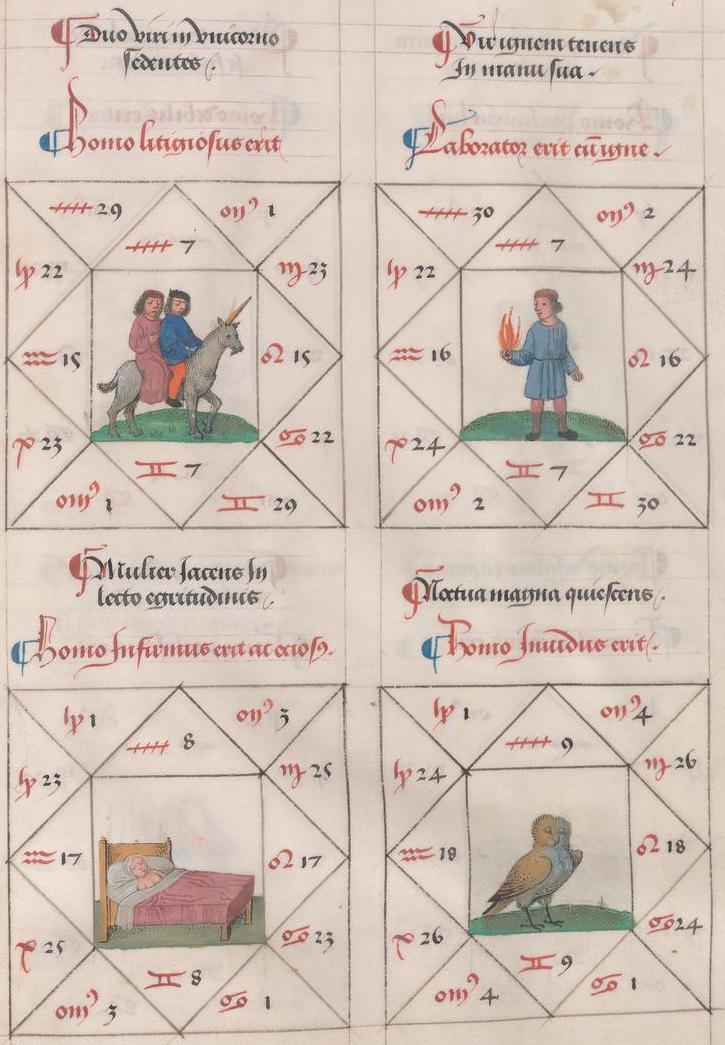 Duo viri in vnicorno
sedentes
Homo litigiosus erit
♐ 29
omꝰ 1
♐ 7
♑ 22
♍ 23
♒ 15
♌ 15
♓ 23
♋ 22
♊ 7
omꝰ 1
♊ 29
Vir ignem tenens
In manu sua
Laborator erit cū igne
♐ 30
omꝰ 2
♐ 7
♑ 22
♍ 24
♒ 16
♌ 16
♓ 24
♋ 22
♊ 7
omꝰ 2
♊ 30
Mulier Jacens In
lecto egritudinis
Homo Infirmus erit ac ociosꝰ
♑ 1
omꝰ 3
♐ 8
♑ 23
♍ 25
♒ 17
♌ 17
♓ 25
♋ 23
♊ 8
omꝰ 3
♋ 1
Noctua magna quiescens
Homo Inuidus erit
♑ 1
omꝰ 4
♐ 9
♑ 24
♍ 26
♒ 18
♌ 18
♓ 26
♋ 24
♊ 9
omꝰ 4
♋ 1